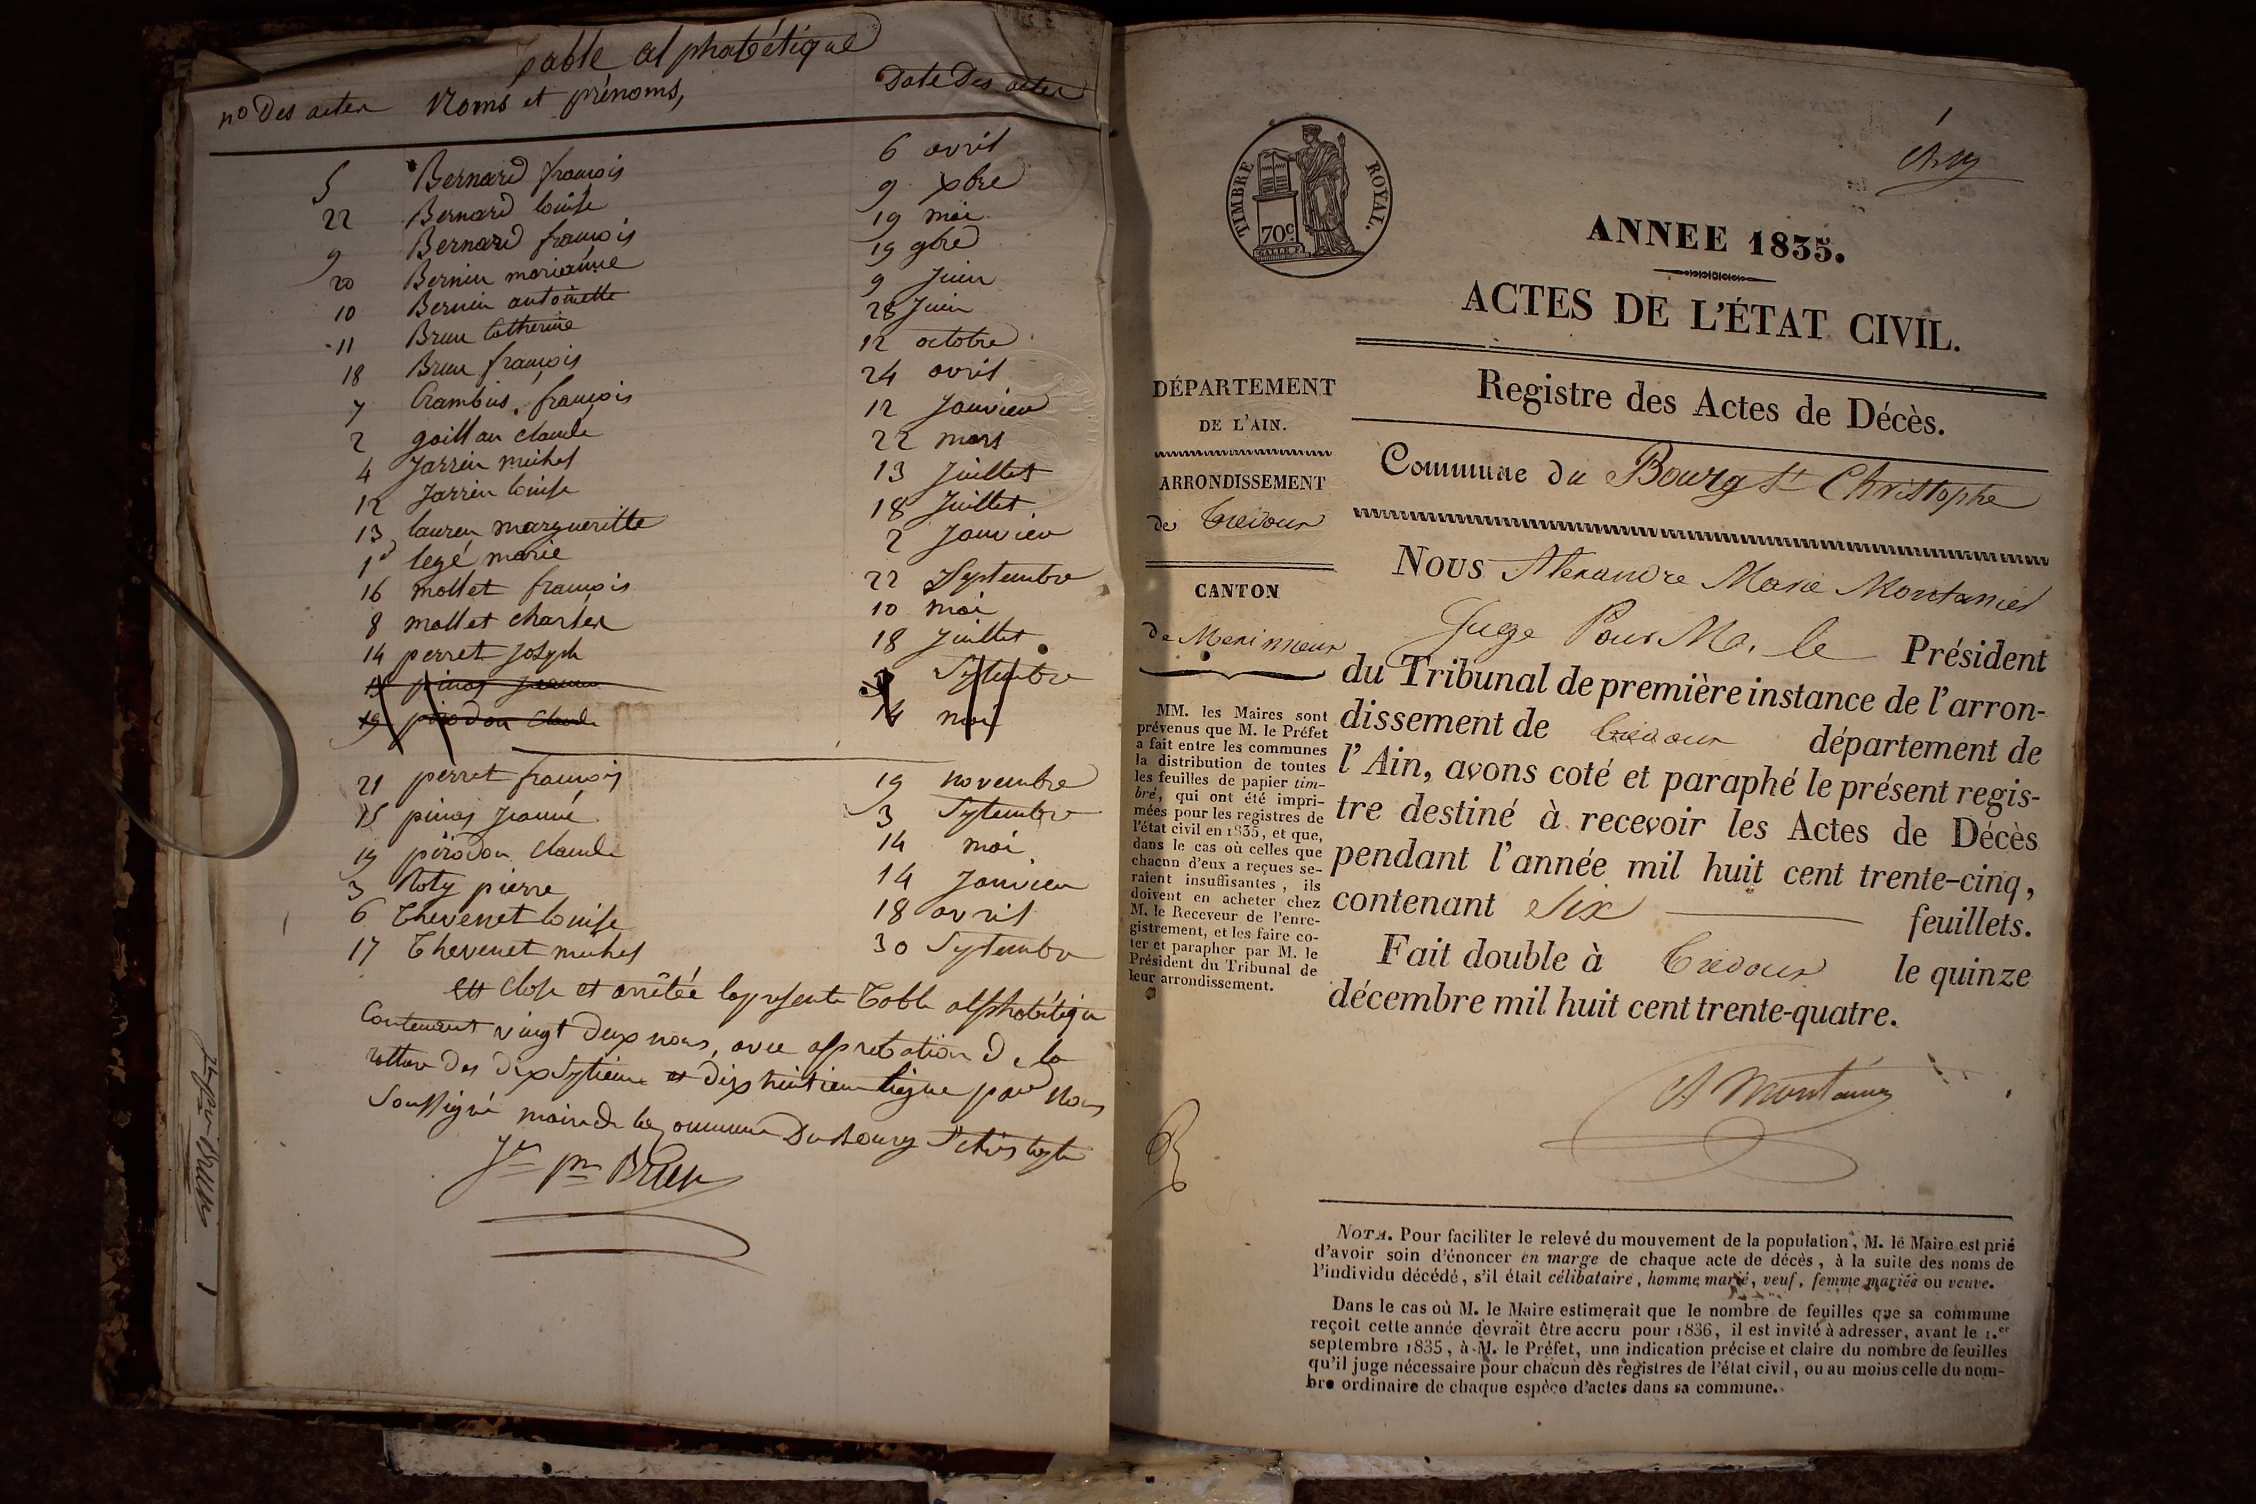 Table alphabétique
no Des actes Noms et prénoms, Date Des actes
5 Bernard françois 6 avril
22 Bernard louise 9 xbre
9 Bernard françois 19 mai
20 Bernin marianne 19 9bre
10 Bernin antoinette 9 Juin
11 Brun Catherine 28 Juin
18 Brun françois 12 octobre
7 Crambis françois 24 avril
2 goillan claude 12 Janvier
4 Jarrin michel 22 mars
12 Jarrin louise 13 Juillet
13 lauren margueritte 18 Juillet
1 legé marie 2 Janvier
16 mollet françois 22 Septembre
8 mollet charles 10 mai
14 perret Joseph 18 Juillet
15 pinas Jeanne 3 Septembre
19 pirodon claude 14 mai
21 perret françois 19 novembre
15 pinas Jeanne 3 Septembre
19 pirodon claude 14 mai
3 Roty pierre 14 Janvier
6 Thevenet louise 18 avril
17 Thevenet michel 30 Septembre
est close et arrêtée la presente Table alphabétique
Contenant vingt deux noms, avec approbation de la
rature des dix septieme et dix huitieme ligne par Nous
Soussigné maire de la commune Du Bourg St christophe
Brun
1
TIMBRE ROYAL.
70c.
ANNEE 1835.
ACTES DE L'ÉTAT CIVIL.
Registre des Actes de Décès.
Commune du Bourg St Christophe
DÉPARTEMENT
DE L'AIN.
ARRONDISSEMENT
de Trevoux
CANTON
de Meximieux
MM. les Maires sont
prévenus que M. le Préfet
a fait entre les communes
la distribution de toutes
les feuilles de papier tim-
bré, qui ont été impri-
mées pour les registres de
l'état civil en 1835, et que,
dans le cas où celles que
chacun d'eux a reçues se-
raient insuffisantes, ils
doivent en acheter chez
M. le Receveur de l'enre-
gistrement, et les faire co-
ter et parapher par M. le
Président du Tribunal de
leur arrondissement.
Nous Alexandre Marie Montaniel
Juge Pour Mr. le Président
du Tribunal de première instance de l'arron-
dissement de Trevoux département de
l'Ain, avons coté et paraphé le présent regis-
tre destiné à recevoir les Actes de Décès
pendant l'année mil huit cent trente-cinq,
contenant Six feuillets.
Fait double à Trevoux le quinze
décembre mil huit cent trente-quatre.
NOTA. Pour faciliter le relevé du mouvement de la population, M. le Maire est prié
d'avoir soin d'énoncer en marge de chaque acte de décès, à la suite des noms de
l'individu décédé, s'il était célibataire, homme marié, veuf, femme mariée ou veuve.
Dans le cas où M. le Maire estimerait que le nombre de feuilles que sa commune
reçoit cette année devrait être accru pour 1836, il est invité à adresser, avant le 1.er
septembre 1835, à M. le Préfet, une indication précise et claire du nombre de feuilles
qu'il juge nécessaire pour chacun des registres de l'état civil, ou au moins celle du nom-
bre ordinaire de chaque espèce d'actes dans sa commune.